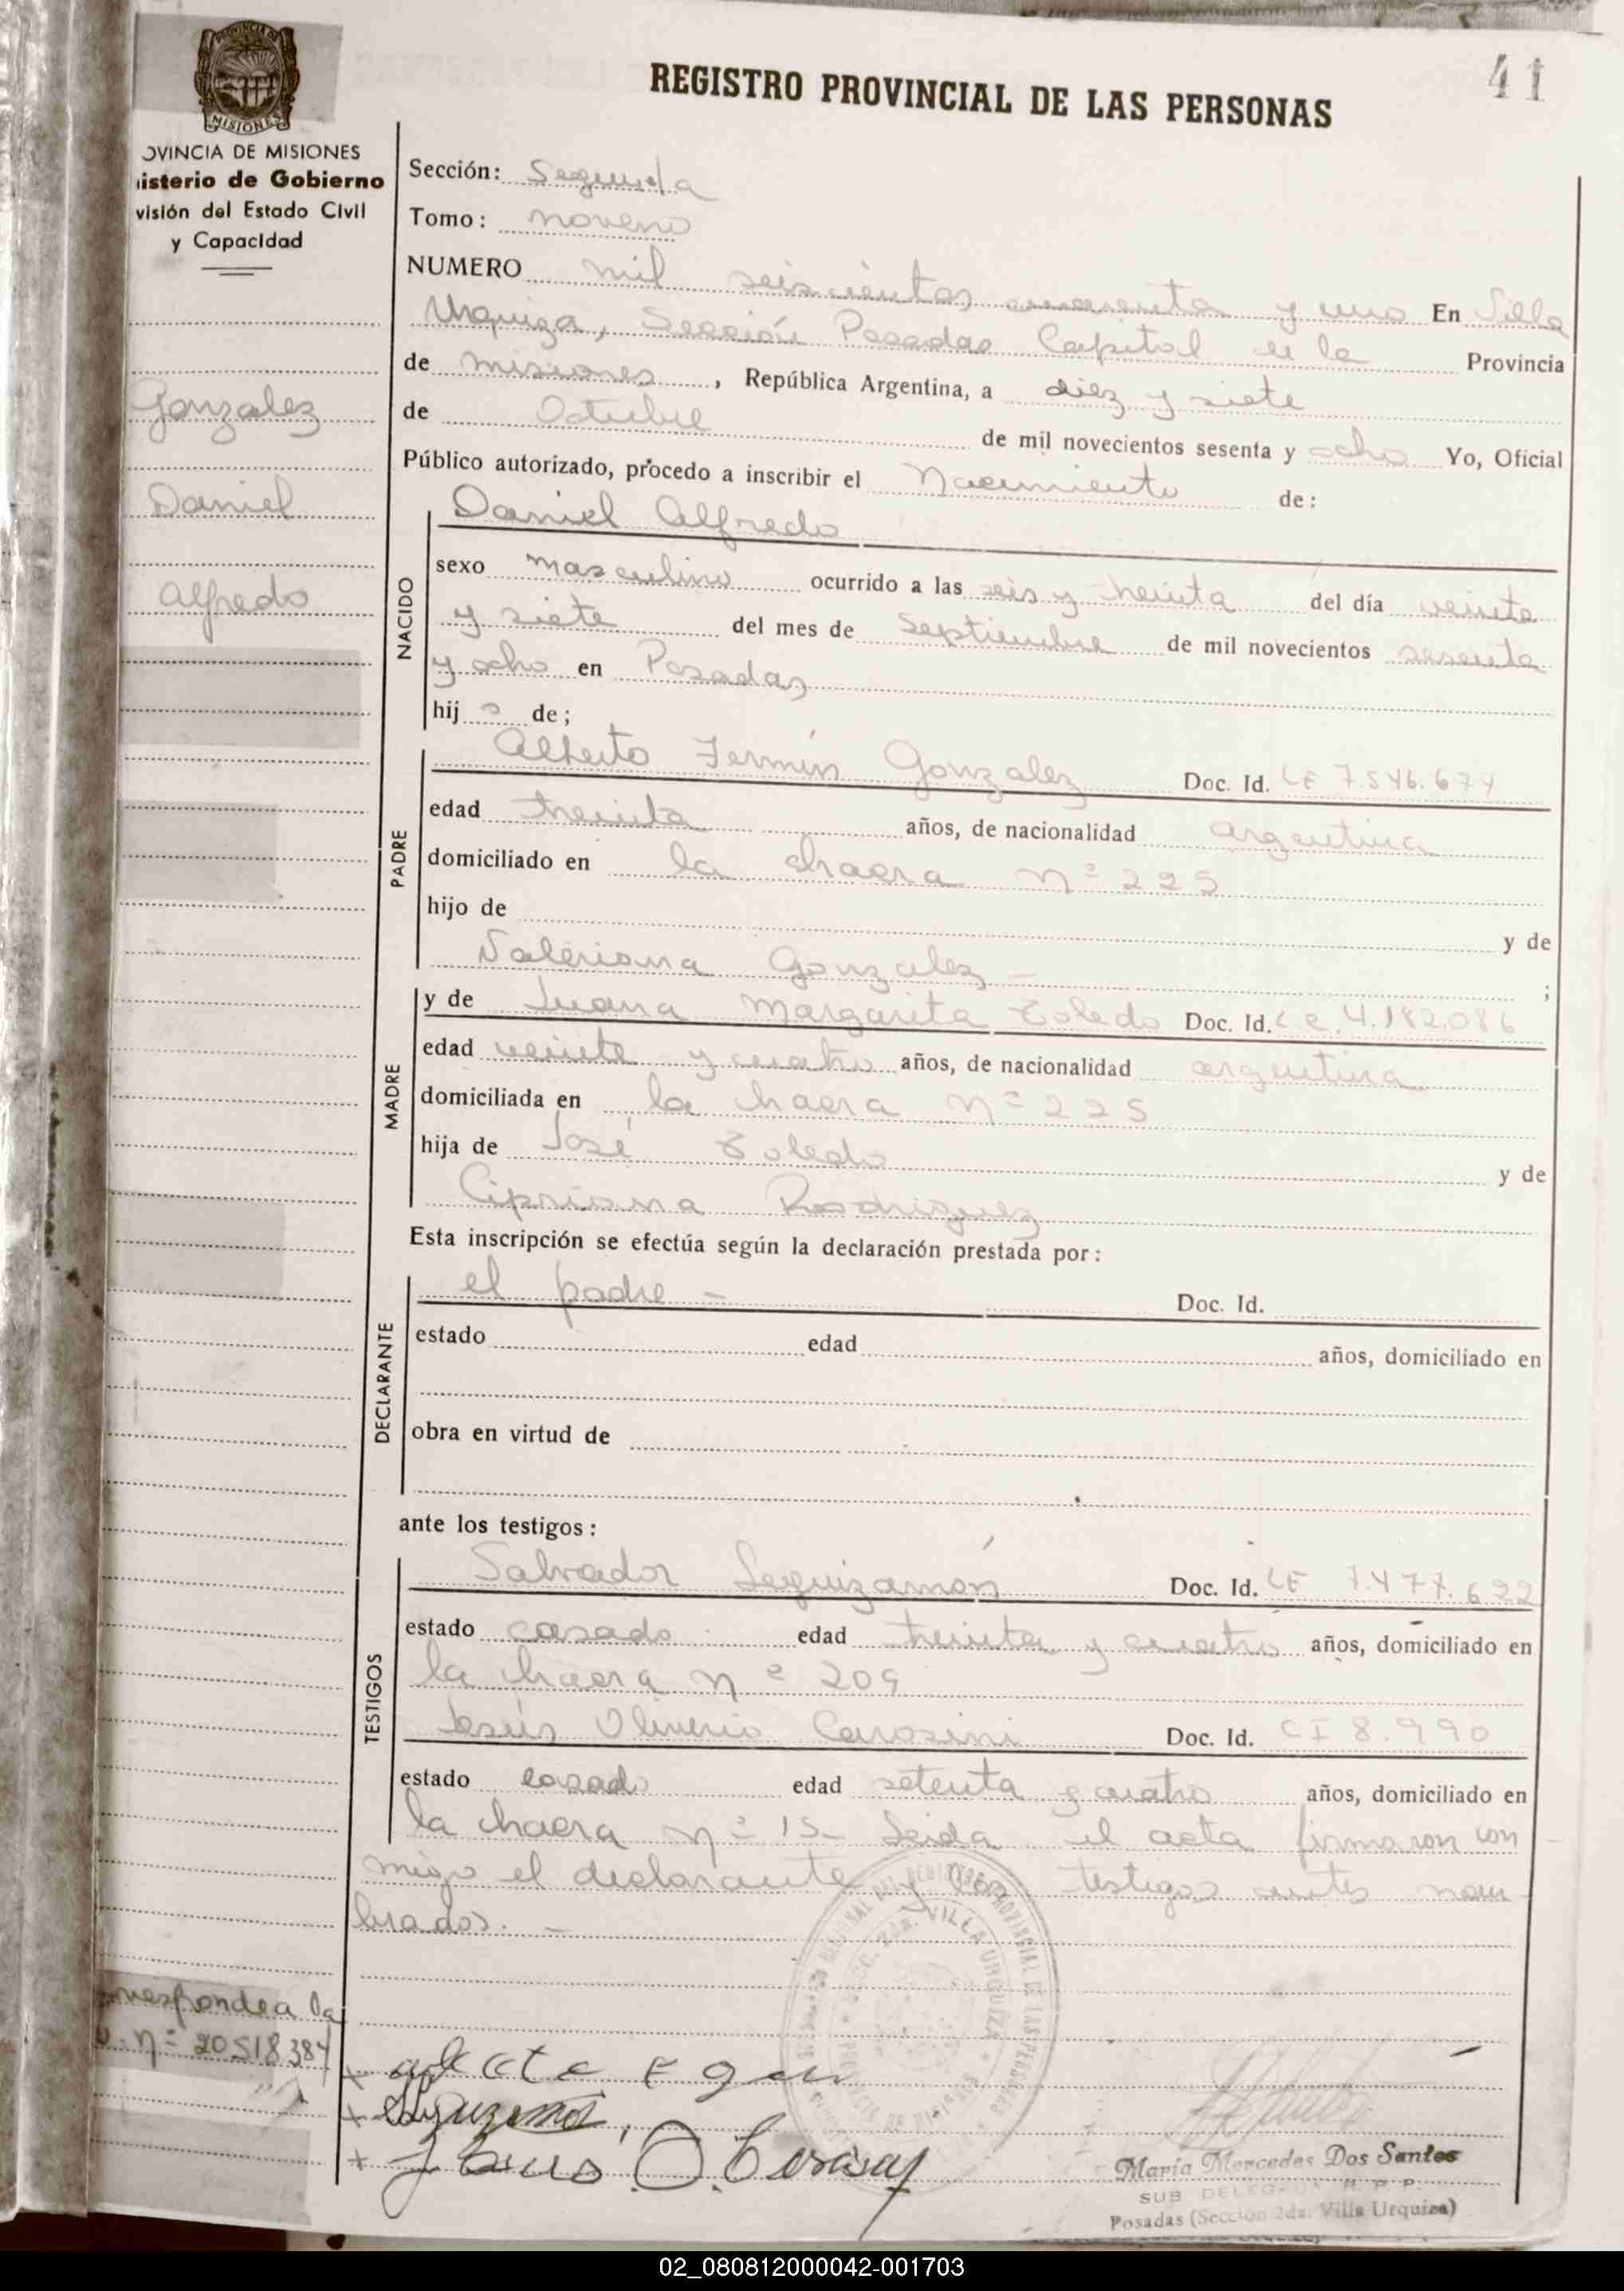 41
REGISTRO PROVINCIAL DE LAS PERSONAS
MISIONES
OVINCIA DE MISIONES
isterio de Gobierno
visión del Estado Civil
y Capacidad
Gonzalez
Daniel
Alfredo
Sección: Segunda
Tomo: noveno
NUMERO mil seiscientos cuarenta y uno En Villa
Urquiza, Sección Posadas Capital de la Provincia
de misiones, República Argentina, a diez y siete
de Octubre de mil novecientos sesenta y ocho Yo, Oficial
Público autorizado, procedo a inscribir el Nacimiento de:
NACIDO
Daniel Alfredo
sexo masculino ocurrido a las seis y treinta del día veinte
y siete del mes de Septiembre de mil novecientos sesenta
y ocho en Posadas
hij o de;
PADRE
Alberto Fermín Gonzalez Doc. Id. LE 7.546.674
edad treinta años, de nacionalidad argentina
domiciliado en la chacra nº 225
hijo de y de
Valeriana Gonzalez - ;
MADRE
y de Juana Margarita Toledo Doc. Id. L.C. 4.182.086
edad veinte y cuatro años, de nacionalidad argentina
domiciliada en la chacra nº 225
hija de José Toledo y de
Cipriana Rodriguez
Esta inscripción se efectúa según la declaración prestada por:
DECLARANTE
el padre - Doc. Id.
estado edad años, domiciliado en
obra en virtud de
ante los testigos:
TESTIGOS
Salvador Leguizamón Doc. Id. LE 7.477.622
estado casado edad treinta y cuatro años, domiciliado en
la chacra nº 209
Jesús Oliverio Carosini Doc. Id. CI 8.990
estado casado edad setenta y cuatro años, domiciliado en
la chacra nº 15- Leida el acta firmaron con
migo el declarante y los testigos antes nom
brados. -
REGISTRO PROVINCIAL DE LAS PERSONAS
SECC. 2da. VILLA URQUIZA
rresponde a la
nº 20518384
María Mercedes Dos Santos
SUB DELEGADA R. P. P.
Posadas (Sección 2da. Villa Urquiza)
02_080812000042-001703